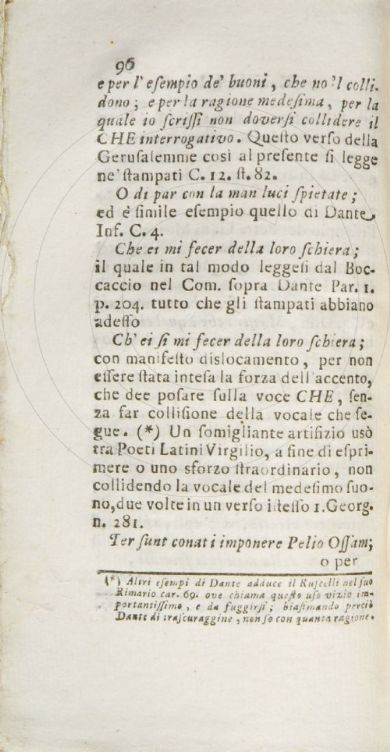 96
e per l'esempio de' buoni, che no'l colli-
dono; e per la ragione medesima, per la
quale io scrissi non doversi collidere il
CHE interrogativo. Questo verso della
Gerusalemme così al presente si legge
ne' stampati C. 12. st. 82.
O di par con la man luci spietate;
ed è simile esempio quello di Dante
Inf. C. 4.
Che ei mi fecer della loro schiera;
il quale in tal modo leggesi dal Boc-
caccio nel Com. sopra Dante Par. 1.
p. 204. tutto che gli stampati abbiano
adesso
Ch' ei si mi fecer della loro schiera;
con manifesto dislocamento, per non
essere stata intesa la forza dell'accento,
che dee posare sulla voce CHE, sen-
za far collisione della vocale che se-
gue. (*) Un somigliante artifizio usò
tra Poeti Latini Virgilio, a fine di espri-
mere o uno sforzo straordinario, non
collidendo la vocale del medesimo suo-
no, due volte in un verso istesso 1. Georg.
n. 281.
Ter sunt conati imponere Pelio Ossam;
o per
(*) Altri esempi di Dante adduce il Ruscelli nel suo
Rimario car. 69. ove chiama questo uso vizio im-
portantissimo, e da fuggirsi; biasimando perciò
Dante di trascuraggine, non so con quanta ragione.